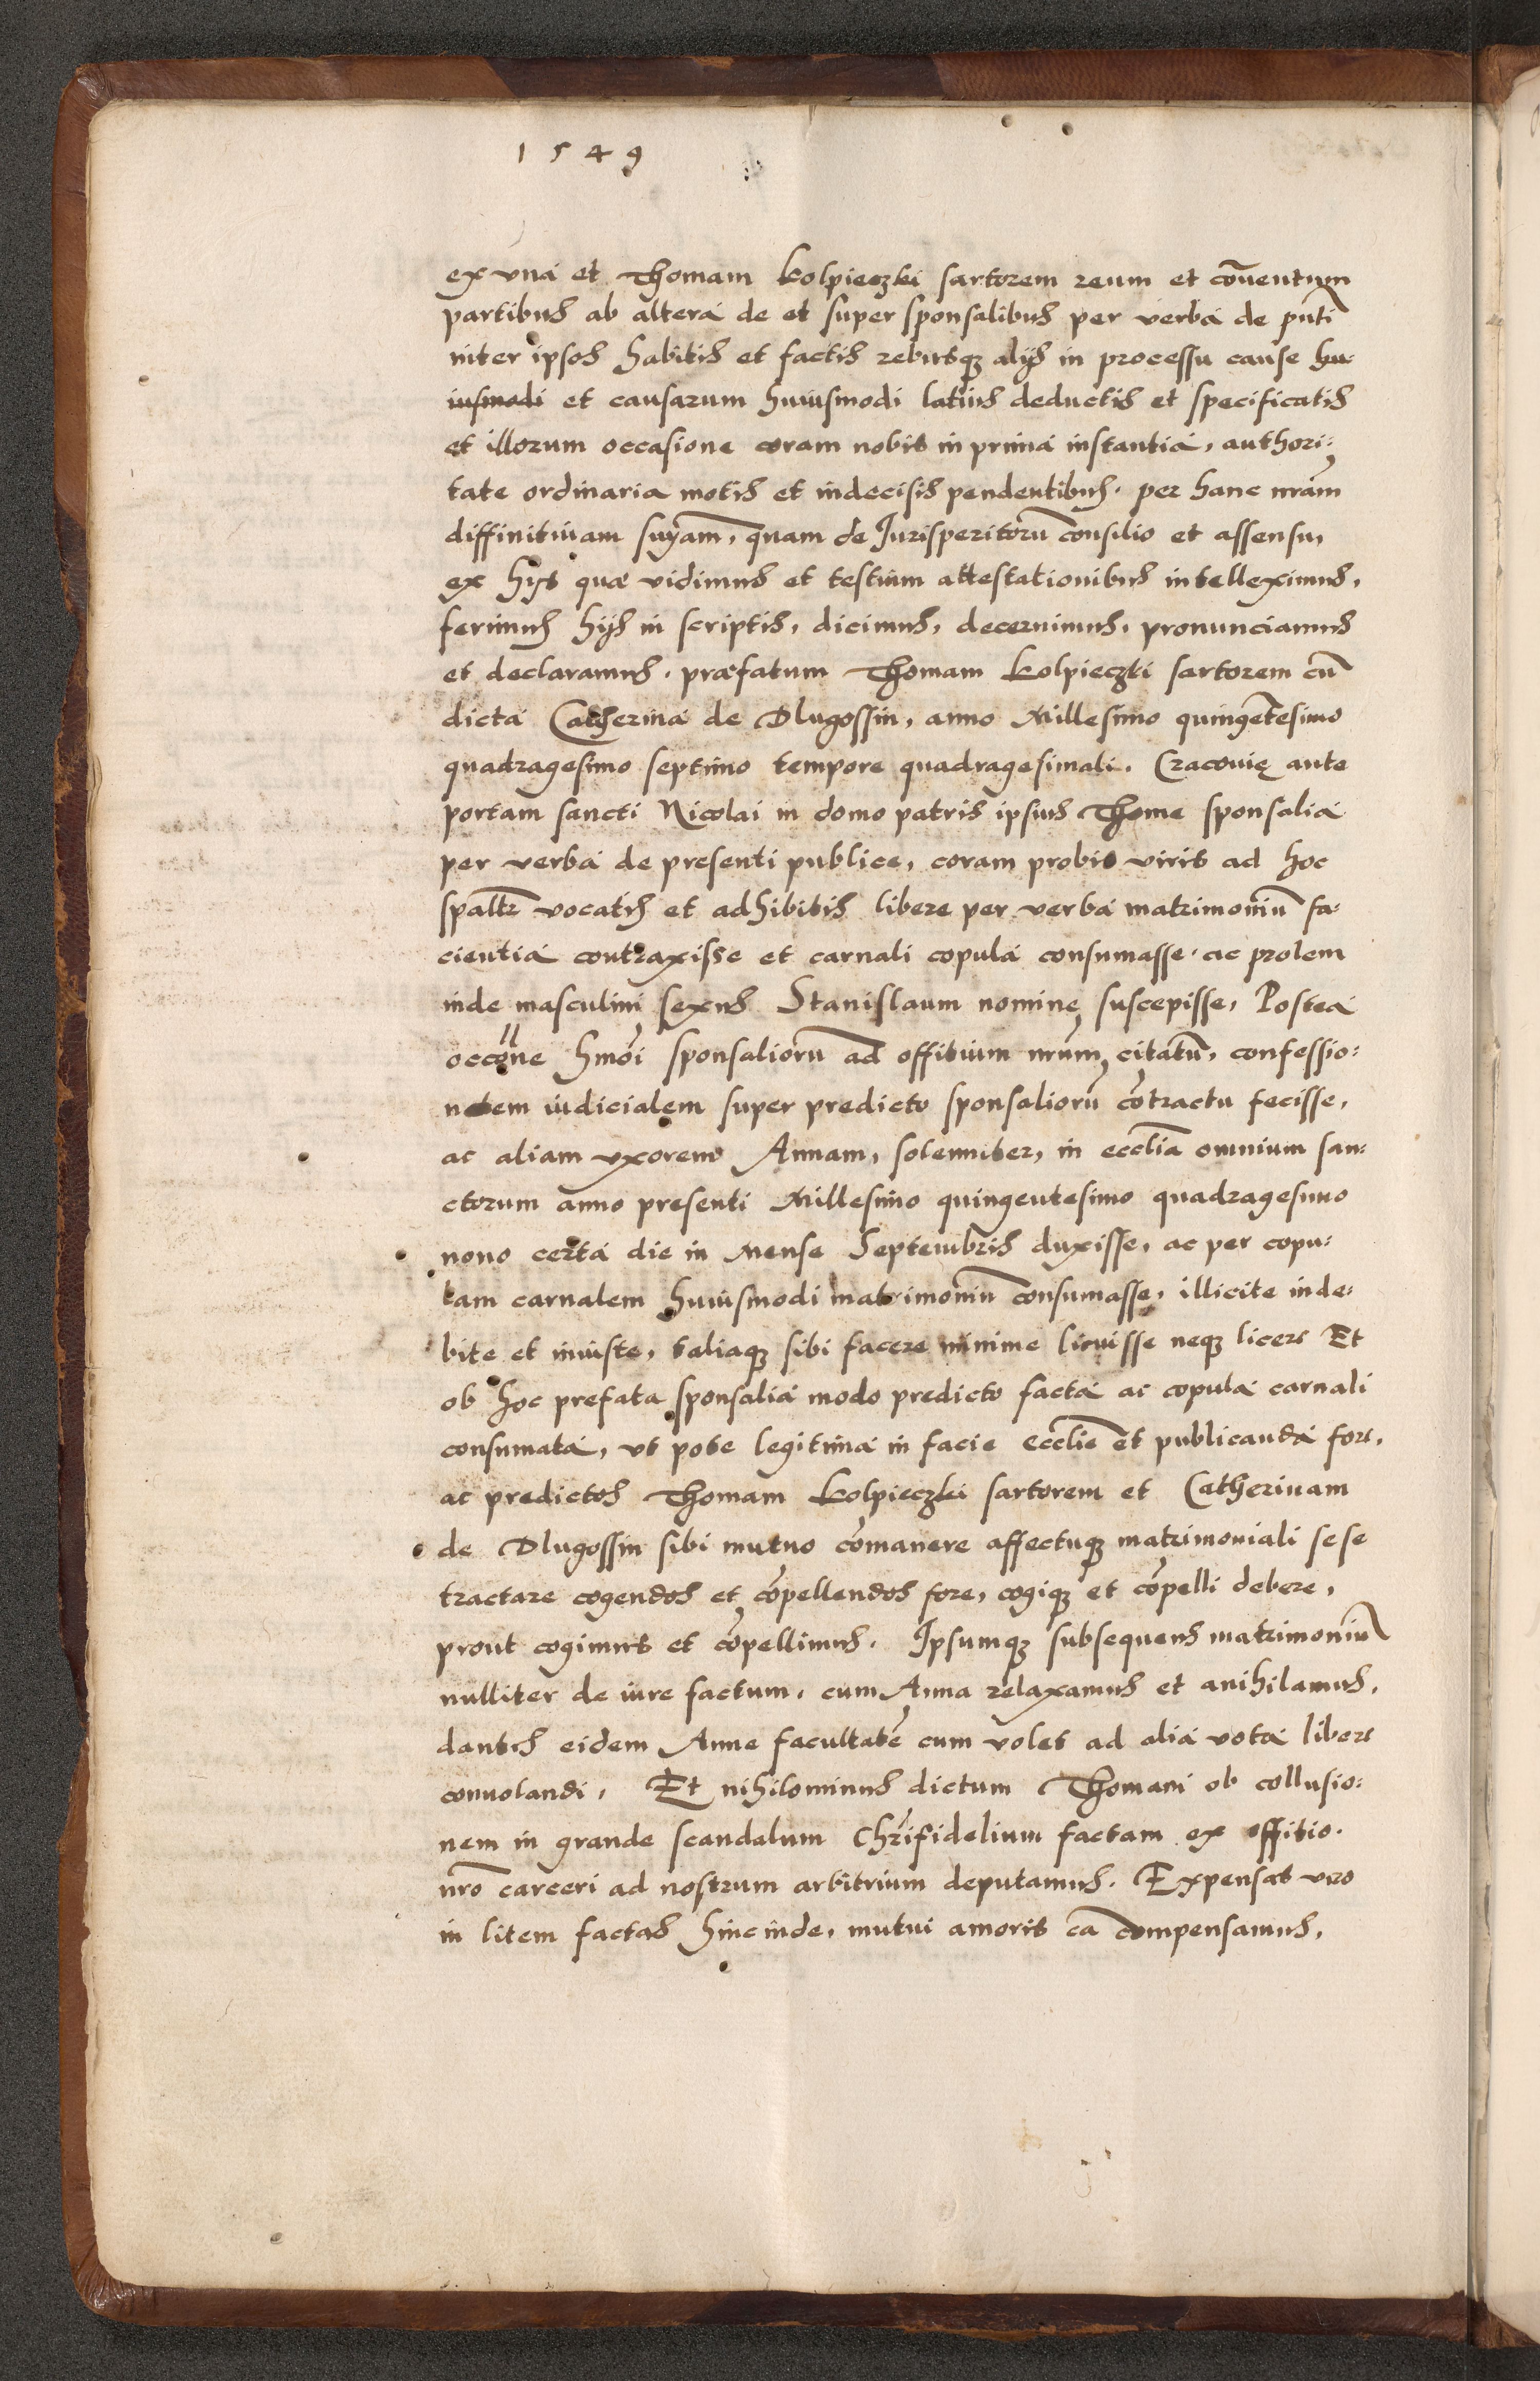 1549
ex vna et Thomam Kolpieczki sartorem reum et cōuentum
partibus ab altera de et super sponsalibus per verba de pn̄ti
inter ipsos habitis et factis rebusq; alijs in processu cause hu-
iusmodi et causarum huiusmodi latius deductis et specificatis
et illorum occasione coram nobis in prima instantia, authori:
tate ordinaria motis et indecisis pendentibus. per hanc nr̄am
diffinitiuam sn̄iam, quam de Jurisperitorū consilio et assensu,
ex hijs quæ vidimus et testium attestationibus intelleximus,
ferimus hijs in scriptis, dicimus, decernimus, pronunciamus
et declaramus. præfatum Thomam Kolpieczki sartorem cū
dicta Catherina de Dlugossin, anno Millesimo quingētesimo
quadragesimo septimo tempore quadragesimali. Cracouię ante
portam sancti Nicolai in domo patris ipsius Thome sponsalia
per verba de presenti publice, coram probis viris ad hoc
spālr̄ vocatis et adhibitis libere per verba matrimoniū fa-
cientia contraxisse et carnali copula consumasse. ac prolem
inde masculini sexus Stanislaum nomine suscepisse, Postea
occōne hmōi sponsaliorū ad offitium nr̄um citatū, confessio:
nem iudicialem super predicto sponsaliorū cōtractu fecisse,
ac aliam vxorem Annam, solenniter, in eccl̄ia omnium san:
ctorum anno presenti Millesimo quingentesimo quadragesimo
nono certa die in mense Septembris duxisse, ac per copu:
lam carnalem huiusmodi matrimoniū consumasse, illicite inde:
bite et iniuste, taliaq; sibi facere minime licuisse neq; licere Et
ob hoc prefata sponsalia modo predicto facta ac copula carnali
consumata, vt pote legitima in facie eccl̄ie et publicanda fore,
ac predictos Thomam Kolpieczki sartorem et Catherinam
de Dlugossin sibi mutuo cōmanere affectuq; matrimoniali sese
tractare cogendos et cōpellendos fore, cogiq; et cōpelli debere,
prout cogimus et cōpellimus. Ipsumq; subsequens matrimoniū
nulliter de iure factum, cum Anna relaxamus et anihilamus,
dantes eidem Anne facultatē cum volet ad alia vota libere
conuolandi, Et nihilominus dictum Thomam ob collusio:
nem in grande scandalum Chr̄ifidelium factam ex offitio
nr̄o carceri ad nostrum arbitrium deputamus. Expensas vr̄o
in litem factas hincinde, mutui amoris cā compensamus,